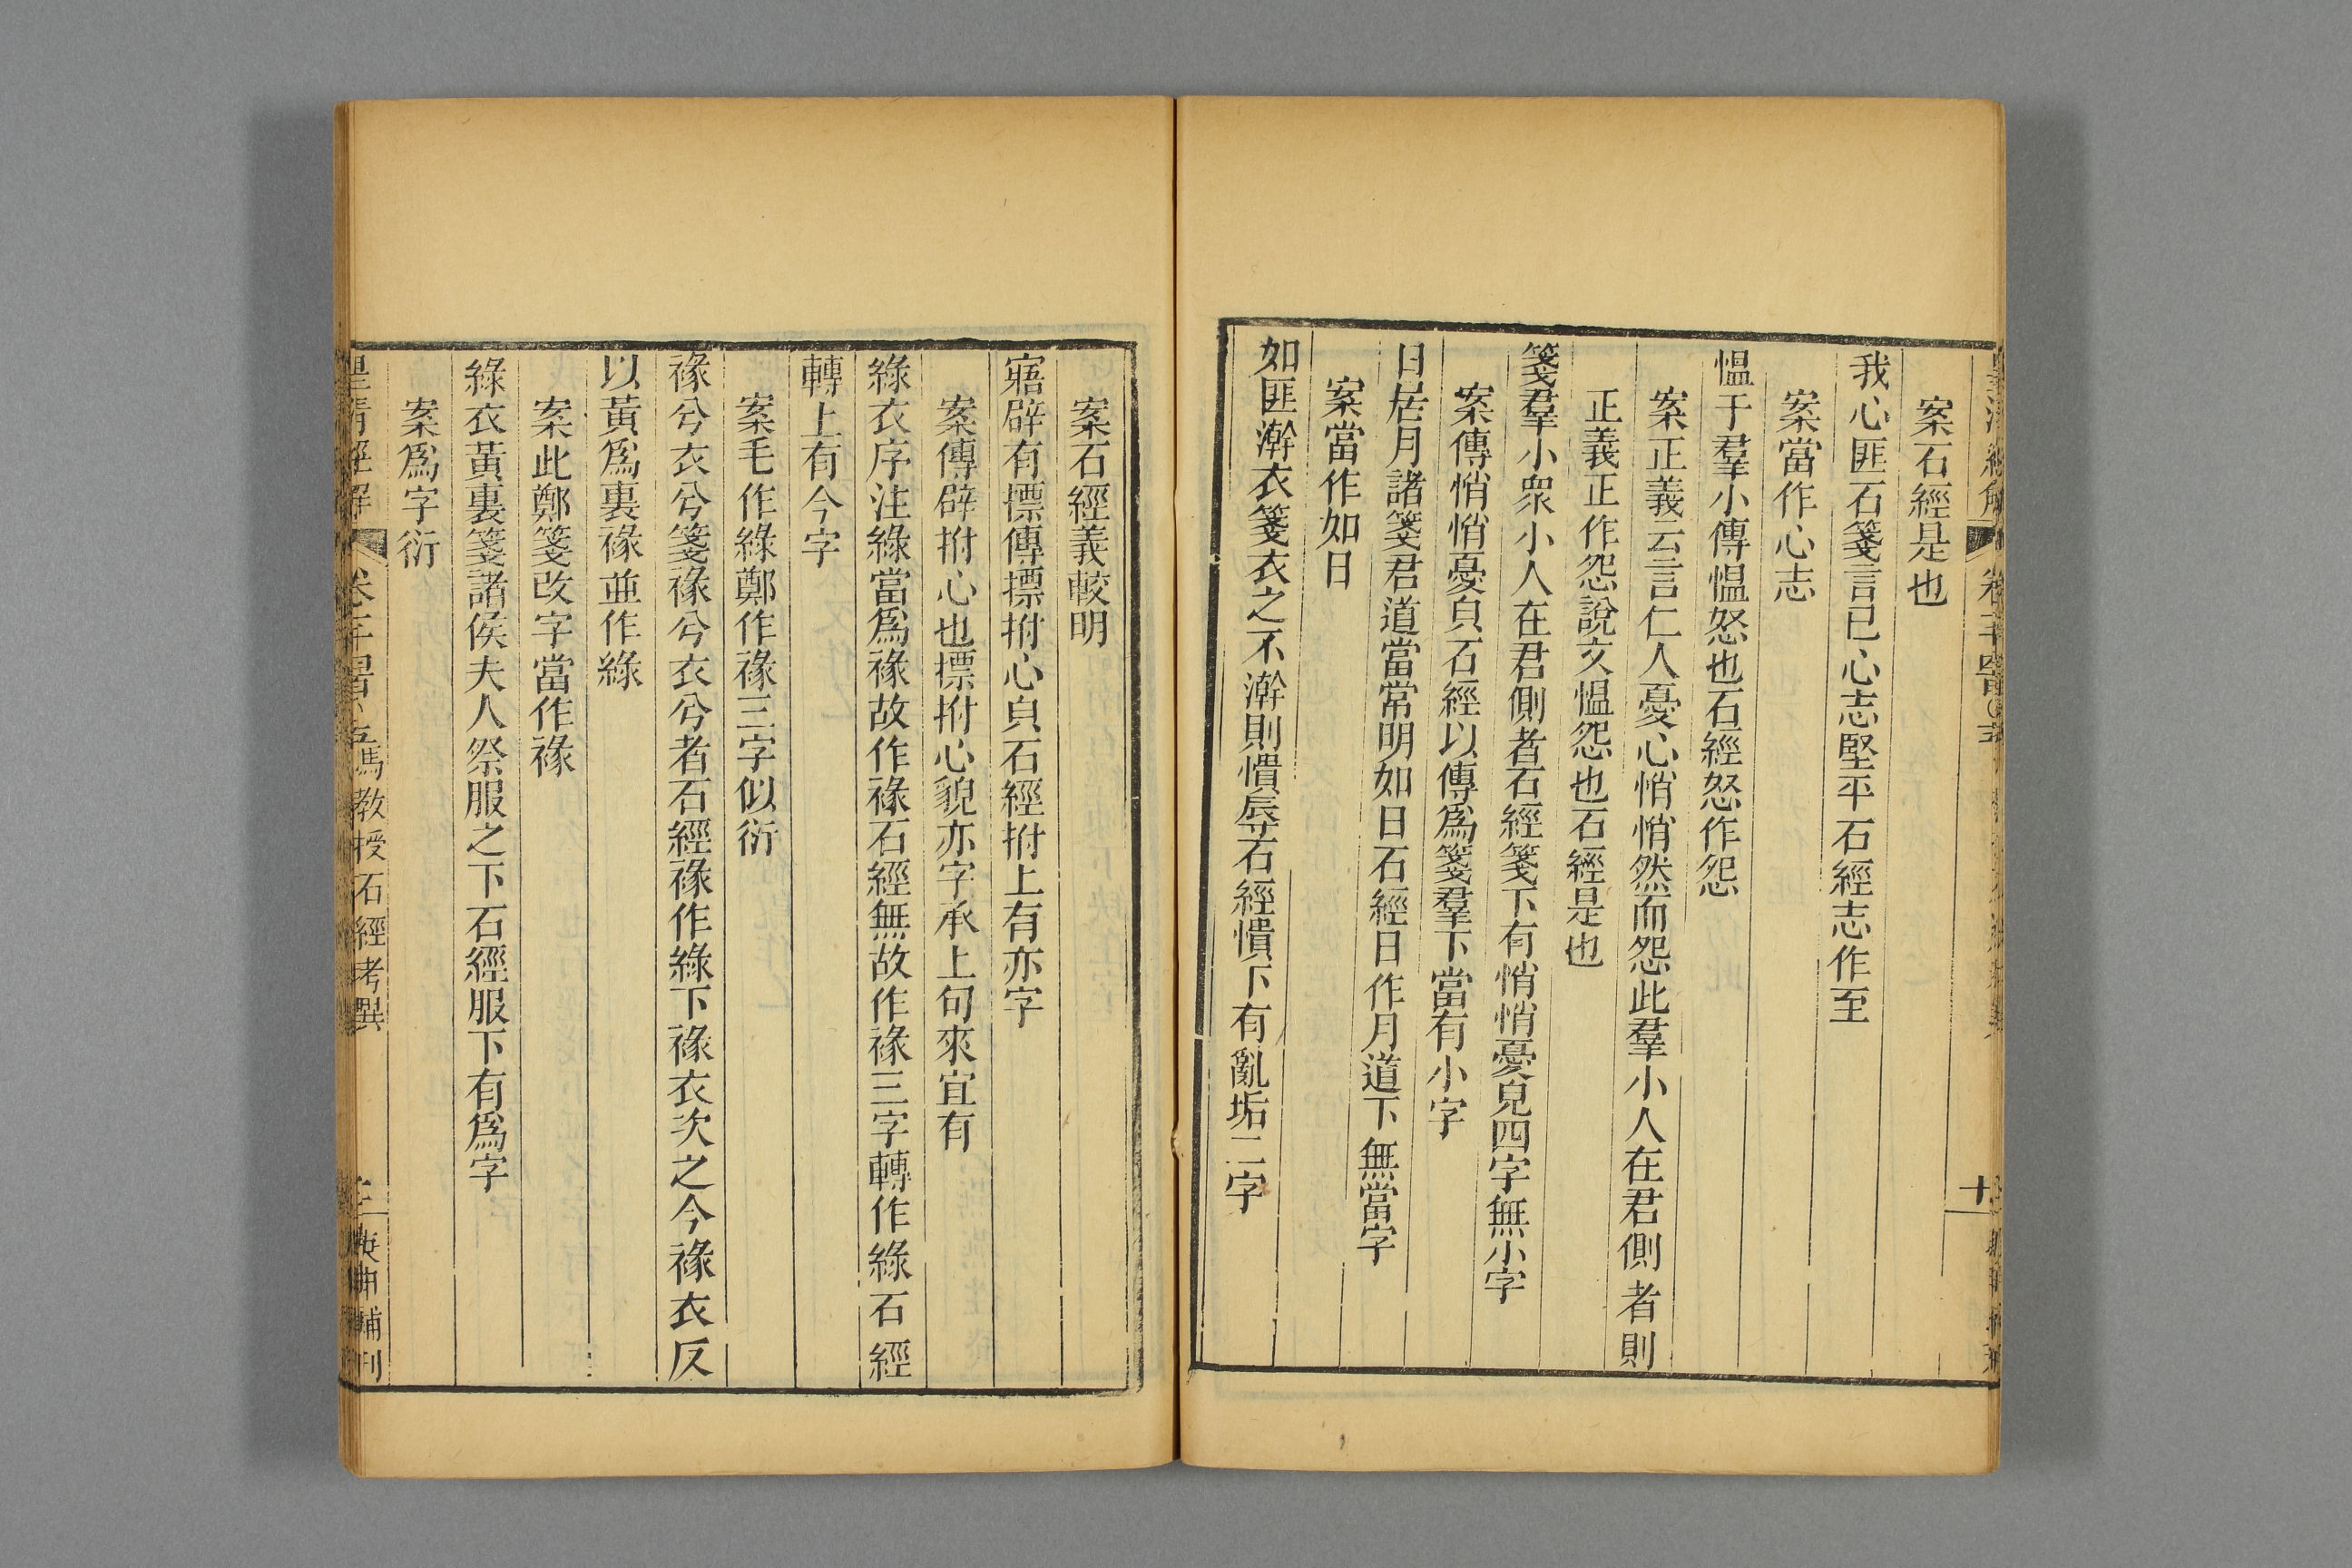 案石經是也
我心匪石箋言已心志堅平石經志作至
案當作心志
慍于羣小傳慍怒也石經怒作怨
案正義云言仁人憂心悄悄然而怨此羣小人在君側者則
正義正作怨說文慍怨也石經是也
箋羣小衆小人在君側者石經箋下有悄悄憂皃四字無小字
案傳悄悄憂皃石經以傳爲箋羣下當有小字
日居月諸箋君道當常明如日石經日作月道下無當字
案當作如日
如匪澣衣箋衣之不澣則憒辱石經憒下有亂垢二字
案石經義較明
寤辟有摽傳摽拊心皃石經拊上有亦字
案傳辟拊心也摽拊心貌亦字承上句來宜有
綠衣序注綠當爲褖故作褖石經無故作褖三字轉作綠石經
轉上有今字
案毛作綠鄭作褖三字似衍
褖兮衣兮箋褖兮衣兮者石經褖作綠下褖衣次之今褖衣反
以黃爲裏褖並作綠
案此鄭箋改字當作褖
綠衣黃裏箋諸侯夫人祭服之下石經服下有爲字
案爲字衍
皇清經解
馮教授石經考異
庚申補刊